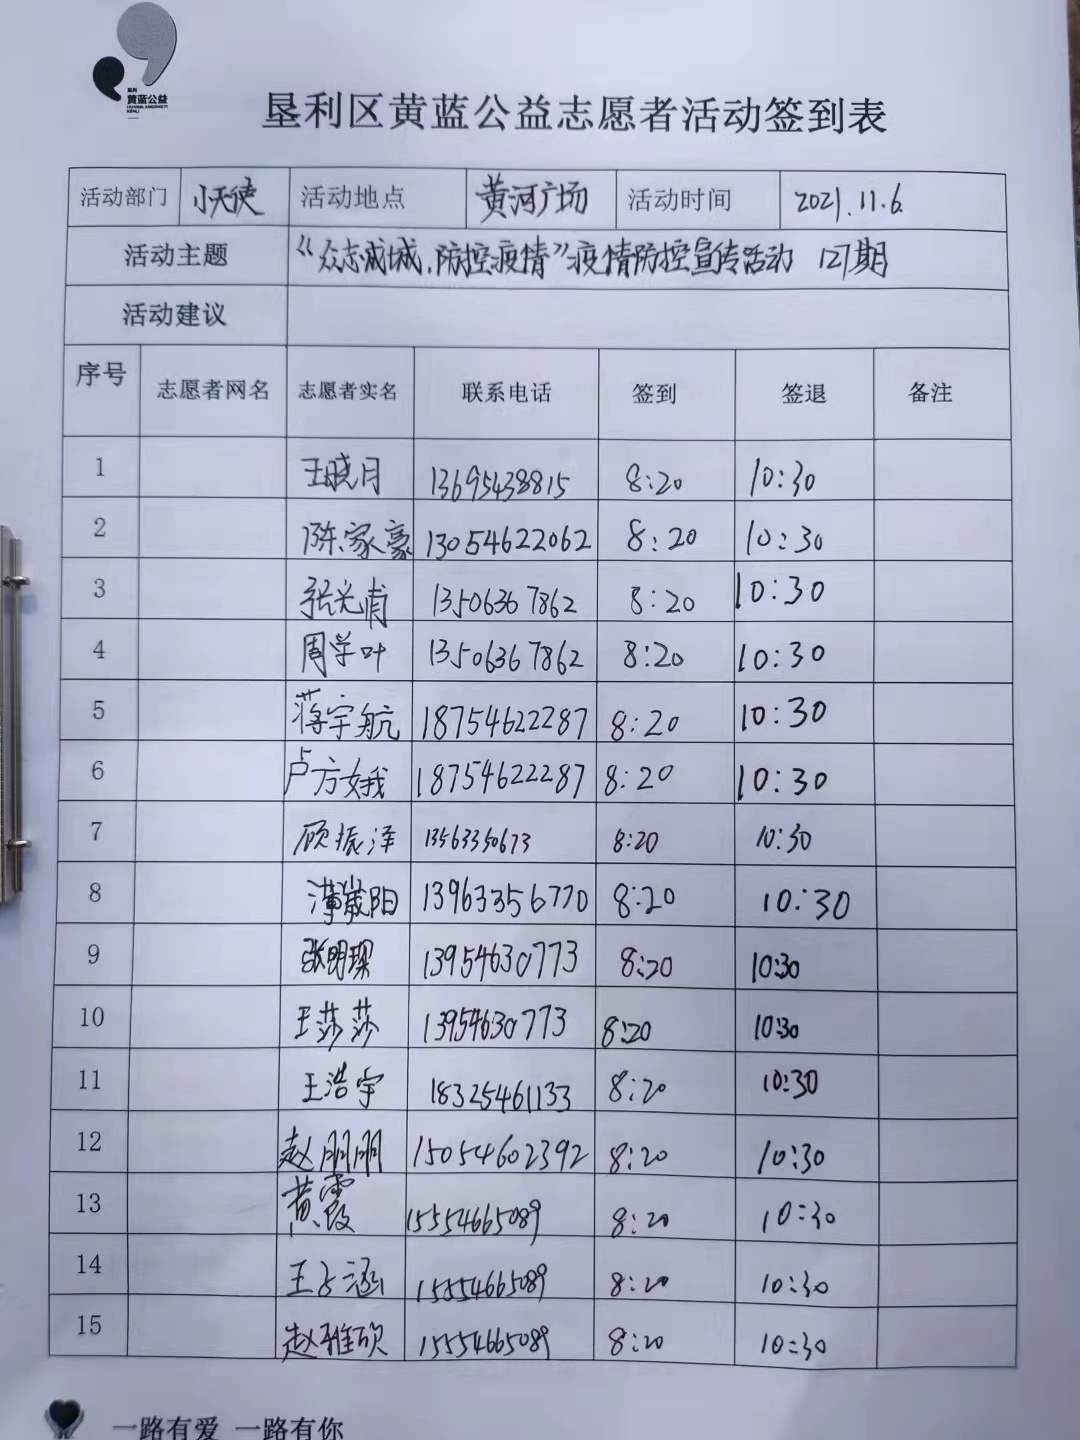 垦利
黄蓝公益
垦利区黄蓝公益志愿者活动签到表
活动部门 小天使 活动地点 黄河广场 活动时间 2021.11.6.
活动主题 《众志成城,防控疫情》疫情防控宣传活动 127期
活动建议
序号 志愿者网名 志愿者实名 联系电话 签到 签退 备注
1 王晓月 13695438815 8:20 10:30
2 陈家豪 13054622062 8:20 10:30
3 张光甫 13506367862 8:20 10:30
4 周学叶 13506367862 8:20 10:30
5 蒋宇航 18754622287 8:20 10:30
6 卢方娥 18754622287 8:20 10:30
7 顾振泽 13563350673 8:20 10:30
8 阳 13963356770 8:20 10:30
9 张明琛 13954630773 8:20 10:30
10 王莎莎 13954630773 8:20 10:30
11 王浩宇 18325461133 8:20 10:30
12 赵朋朋 15054602392 8:20 10:30
13 黄霞 15554665089 8:20 10:30
14 王子涵 15554665089 8:20 10:30
15 赵雅硕 15554665089 8:20 10:30
一路有爱 一路有你